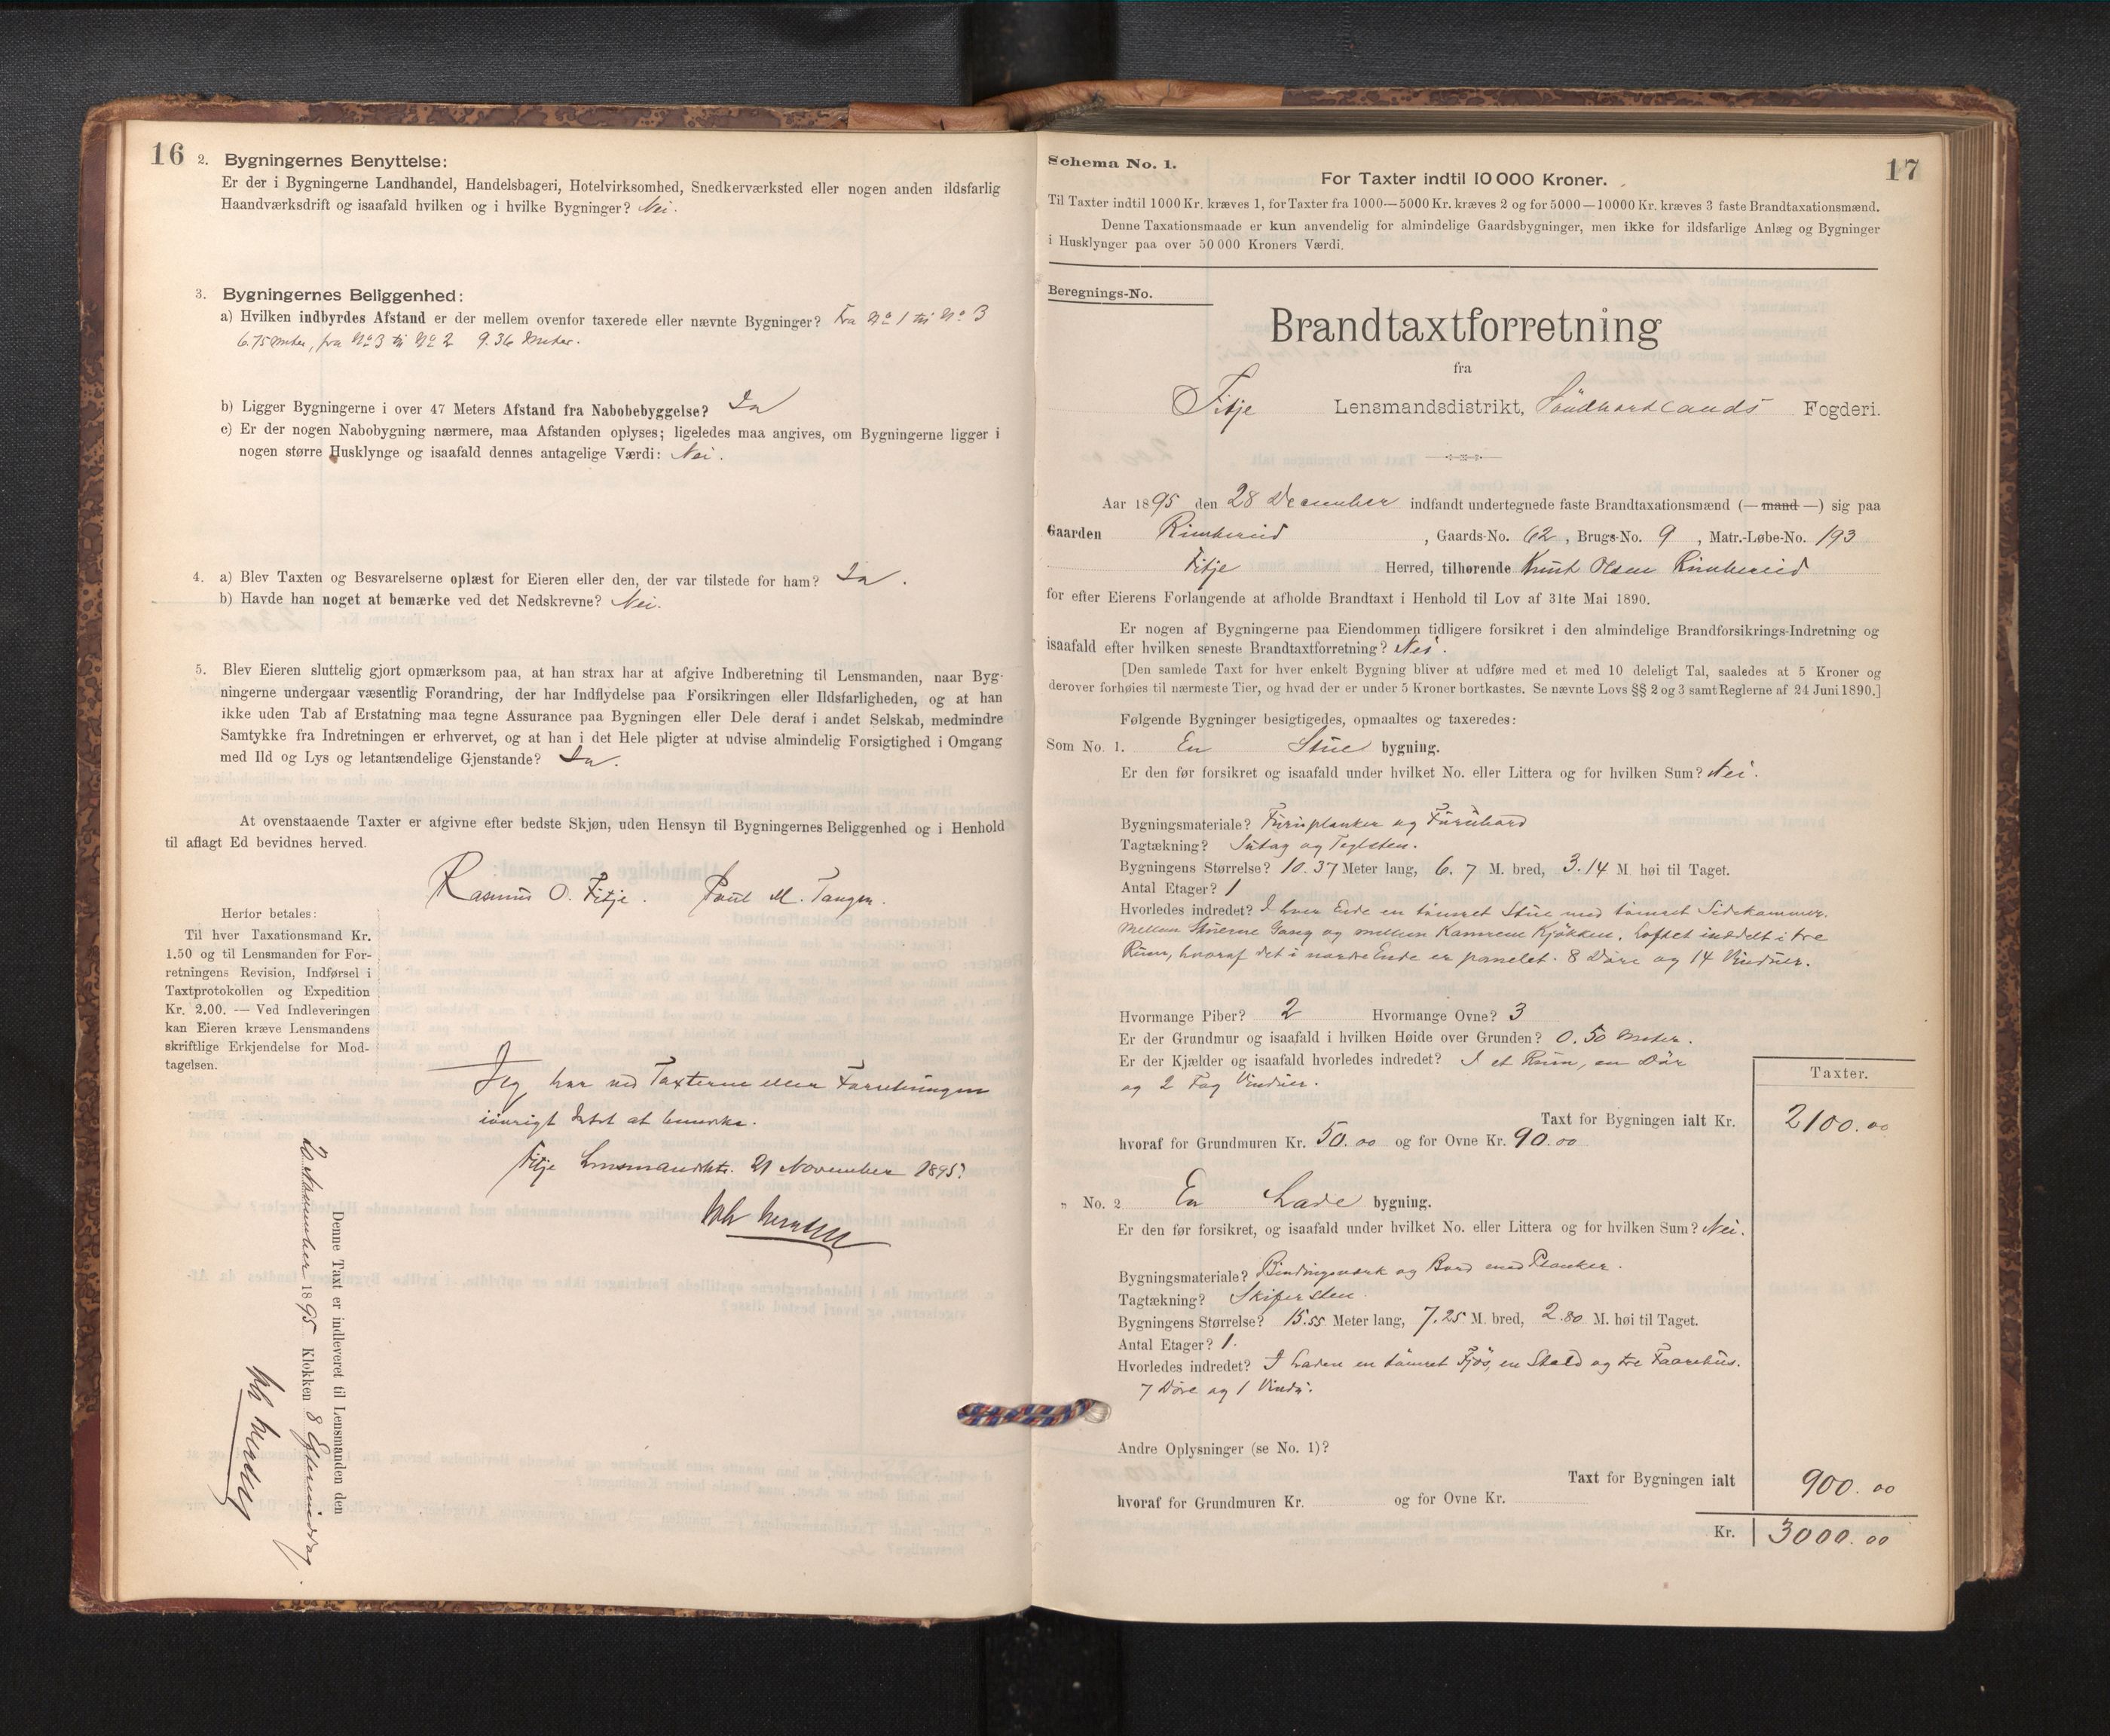 16
2. Bygningernes Benyttelse:
Er der i Bygningerne Landhandel, Handelsbageri, Hotelvirksomhed, Snedkerværksted eller nogen anden ildsfarlig
Haandværksdrift og isaafald hvilken og i hvilke Bygninger? Nei.
3. Bygningernes Beliggenhed:
a) Hvilken indbyrdes Afstand er der mellem ovenfor taxerede eller nævnte Bygninger? Fra No 1 til No 3
6.75 Meter, fra No 3 til No 2 9.36 Meter.
b) Ligger Bygningerne i over 47 Meters Afstand fra Nabobebyggelse? Ja
c) Er der nogen Nabobygning nærmere, maa Afstanden oplyses; ligeledes maa angives, om Bygningerne ligger i
nogen større Husklynge og isaafald dennes antagelige Værdi: Nei.
4. a) Blev Taxten og Besvarelserne oplæst for Eieren eller den, der var tilstede for ham? Ja.
b) Havde han noget at bemærke ved det Nedskrevne? Nei.
5. Blev Eieren sluttelig gjort opmærksom paa, at han strax har at afgive Indberetning til Lensmanden, naar Byg-
ningerne undergaar væsentlig Forandring, der har Indflydelse paa Forsikringen eller Ildsfarligheden, og at han
ikke uden Tab af Erstatning maa tegne Assurance paa Bygningen eller Dele deraf i andet Selskab, medmindre
Samtykke fra Indretningen er erhvervet, og at han i det Hele pligter at udvise almindelig Forsigtighed i Omgang
med Ild og Lys og letantændelige Gjenstande? Ja.
At ovenstaaende Taxter er afgivne efter bedste Skjøn, uden Hensyn til Bygningernes Beliggenhed og i Henhold
til aflagt Ed bevidnes herved.
Rasmus O. Fitje. Poul M. Tangen.
Herfor betales:
Til hver Taxationsmand Kr.
1.50 og til Lensmanden for For-
retningens Revision, Indførsel i
Taxtprotokollen og Expedition
Kr. 2.00. — Ved Indleveringen
kan Eieren kræve Lensmandens
skriftlige Erkjendelse for Mod-
tagelsen.
Jeg har ved Taxterne eller Forretningen
iøvrigt Intet at bemerke.
Fitje Lensmandsktr. 21 November 1895.
Denne Taxt er indleveret til Lensmanden den
20 November 1895 Klokken 8 Eftermiddag.
Schema No. 1.
17
For Taxter indtil 10 000 Kroner.
Til Taxter indtil 1000 Kr. kræves 1, for Taxter fra 1000—5000 Kr. kræves 2 og for 5000—10000 Kr. kræves 3 faste Brandtaxationsmænd.
Denne Taxationsmaade er kun anvendelig for almindelige Gaardsbygninger, men ikke for ildsfarlige Anlæg og Bygninger
i Husklynger paa over 50 000 Kroners Værdi.
Beregnings-No.
Brandtaxtforretning
fra
Fitje Lensmandsdistrikt, Söndhordlands Fogderi.
Aar 1895 den 28 December indfandt undertegnede faste Brandtaxationsmænd (— mand —) sig paa
Gaarden Rimbereid, Gaards-No. 62, Brugs-No. 9, Matr.-Løbe-No. 193
Fitje Herred, tilhørende Knut Olsen Rimbereid
for efter Eierens Forlangende at afholde Brandtaxt i Henhold til Lov af 31te Mai 1890.
Er nogen af Bygningerne paa Eiendommen tidligere forsikret i den almindelige Brandforsikrings-Indretning og
isaafald efter hvilken seneste Brandtaxtforretning? Nei.
[Den samlede Taxt for hver enkelt Bygning bliver at udføre med et med 10 deleligt Tal, saaledes at 5 Kroner og
derover forhøies til nærmeste Tier, og hvad der er under 5 Kroner bortkastes. Se nævnte Lovs §§ 2 og 3 samt Reglerne af 24 Juni 1890.]
Følgende Bygninger besigtigedes, opmaaltes og taxeredes:
Som No. 1. En Stue bygning.
Er den før forsikret og isaafald under hvilket No. eller Littera og for hvilken Sum? Nei.
Bygningsmateriale? Furuplanker og Furubord
Tagtækning? Sutag og Teglsten.
Bygningens Størrelse? 10.37 Meter lang, 6.7 M. bred, 3.14 M høi til Taget.
Antal Etager? 1
Hvorledes indredet? I hver Ende en tömret Stue med tömret Sidekammer.
Mellem Stuerne Gang og mellem Kamrene Kjökken. Loftet inddelt i tre
Rum, hvoraf det i nordre Ende er panelet. 8 Döre og 14 Vinduer.
Hvormange Piber? 2 Hvormange Ovne? 3
Er der Grundmur og isaafald i hvilken Høide over Grunden? 0.50 Meter.
Er der Kjælder og isaafald hvorledes indredet? I et Rum, en Dör
og 2 Fag Vinduer.
Taxter.
Taxt for Bygningen ialt Kr. 2100.00
hvoraf for Grundmuren Kr. 50.00 og for Ovne Kr. 90.00
„ No. 2 En Lade bygning.
Er den før forsikret, og isaafald under hvilket No. eller Littera og for hvilken Sum? Nei.
Bygningsmateriale? Bindingsverk og Bord med Planker.
Tagtækning? Skifersten
Bygningens Størrelse? 15.55 Meter lang, 7.25 M. bred, 2.80 M. høi til Taget.
Antal Etager? 1.
Hvorledes indredet? I Laden en tömret Fjös, en Stald og tre Faarehus.
7 Döre og 1 Vindu.
Andre Oplysninger (se No. 1)?
Taxt for Bygningen ialt 900.00
hvoraf for Grundmuren Kr. og for Ovne Kr.
Kr. 3000.00